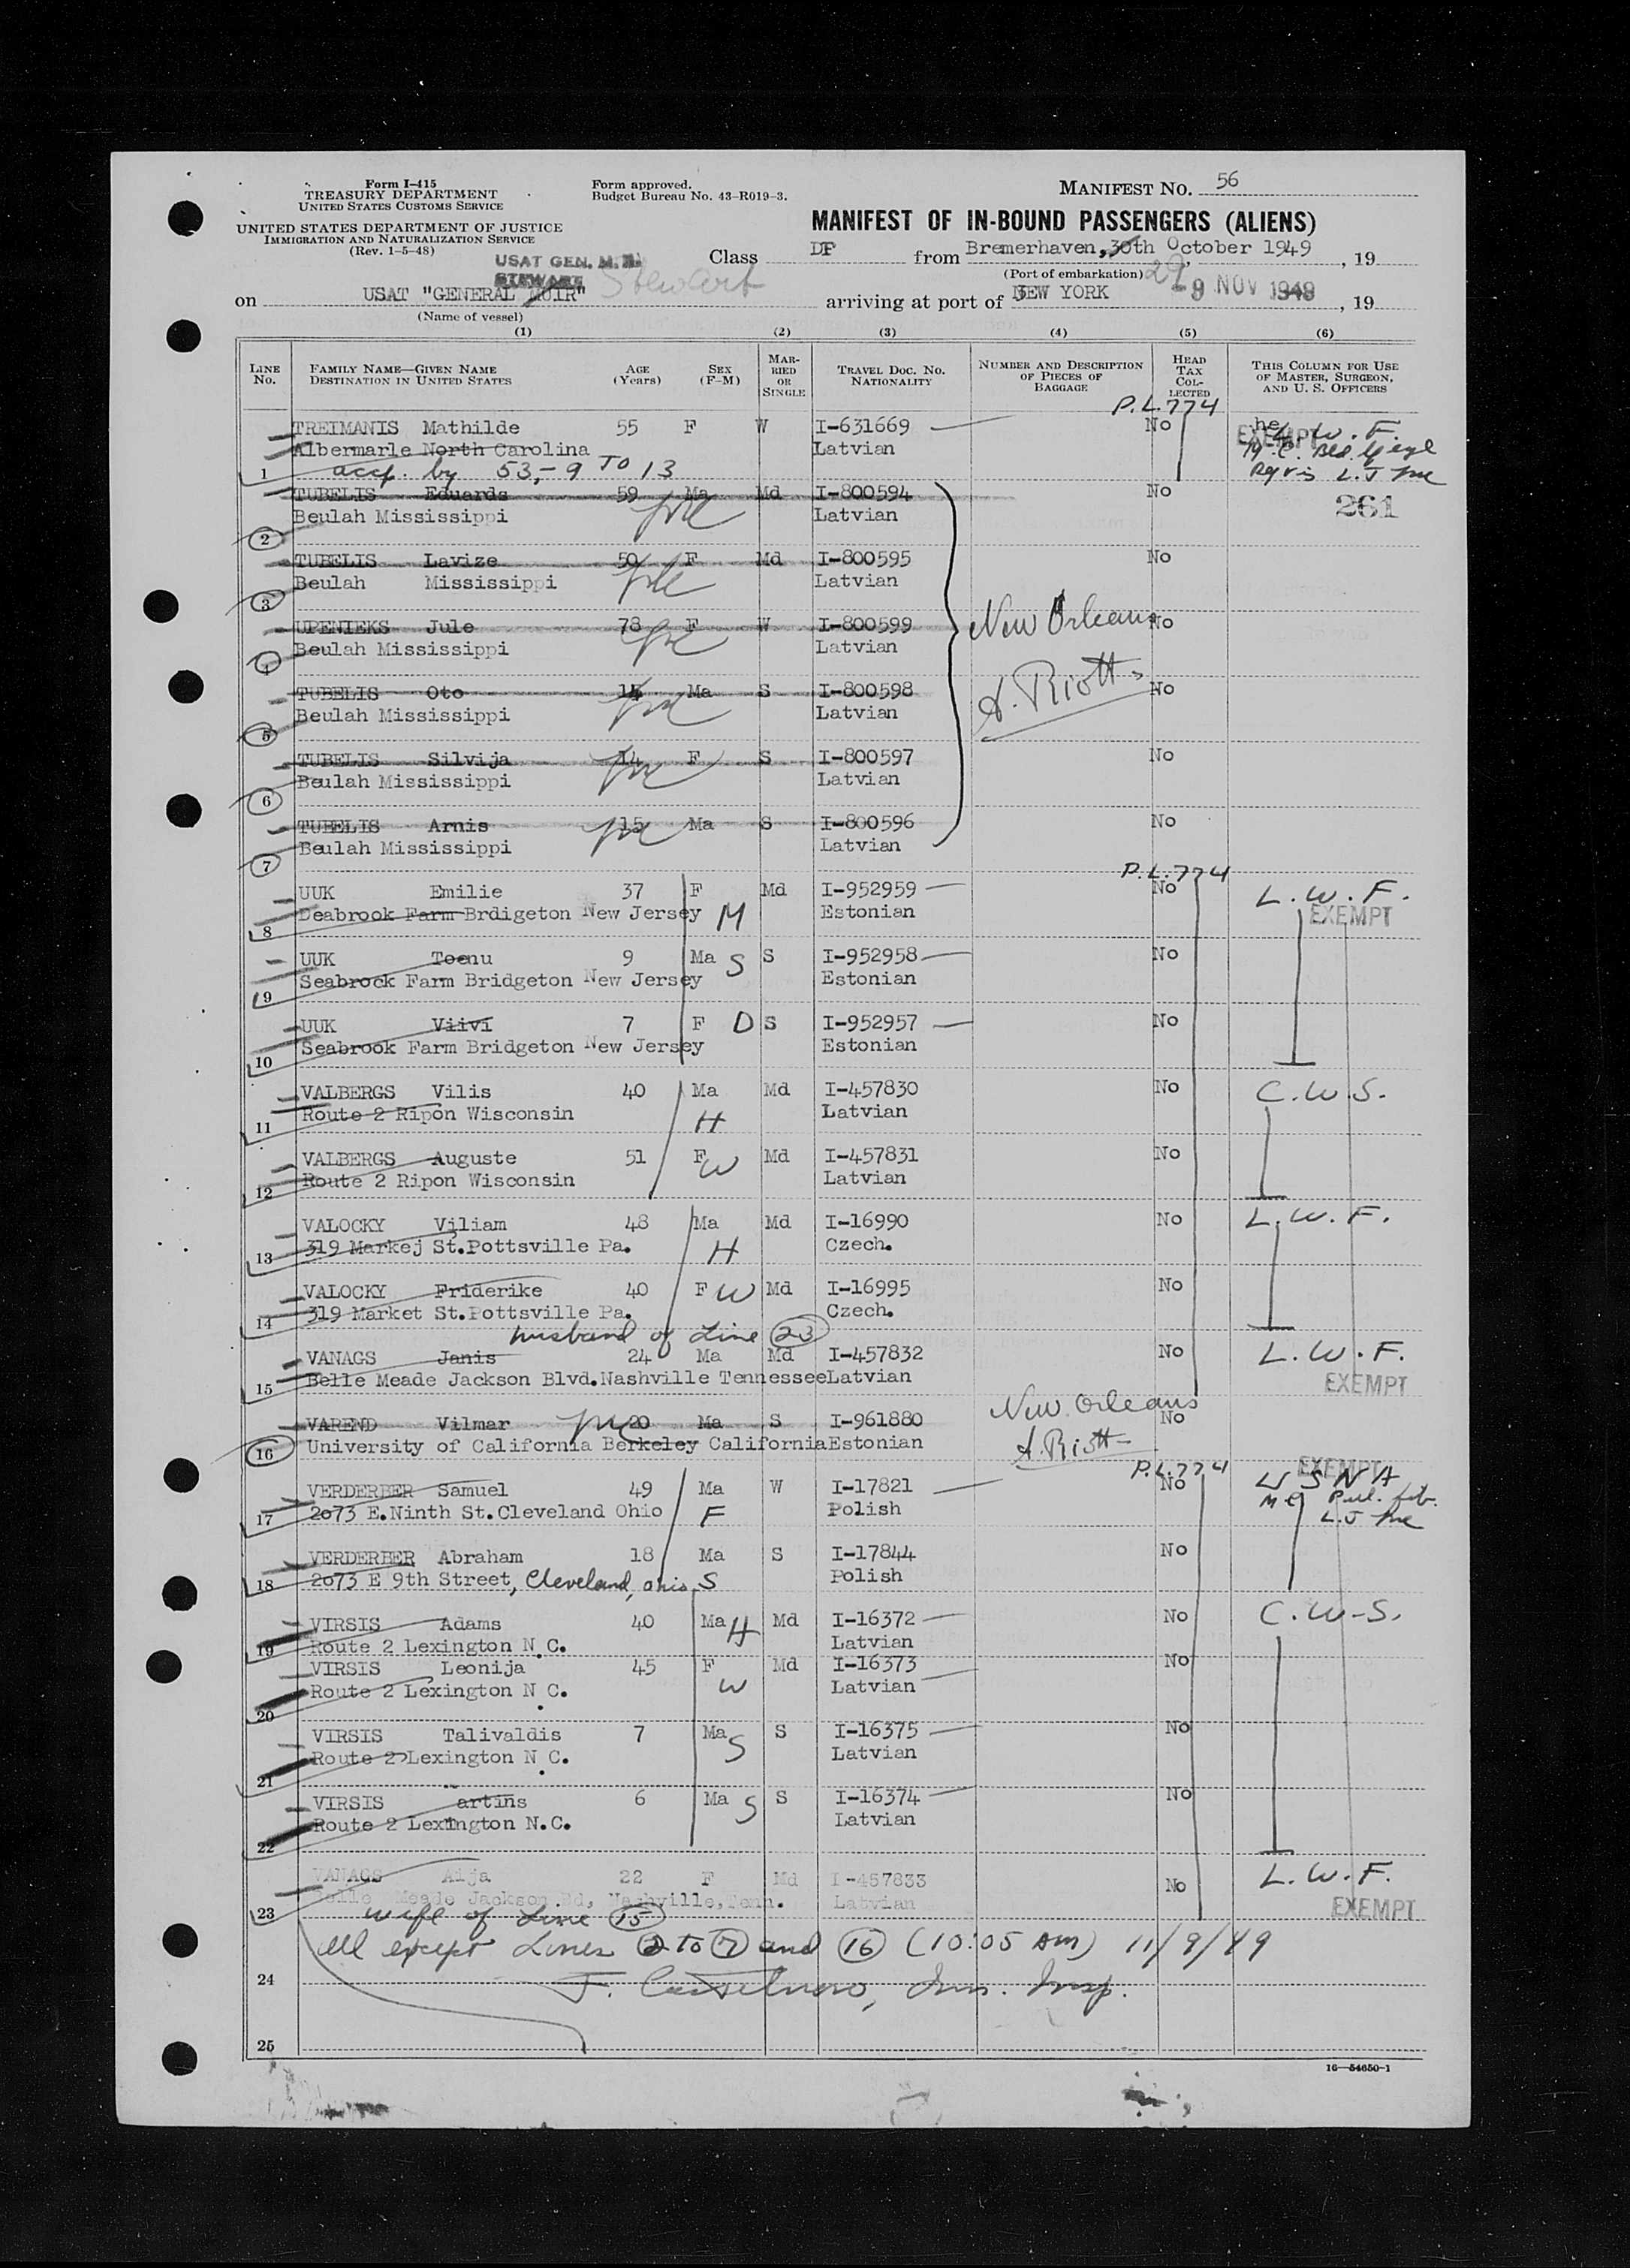 Form I-415
TREASURY DEPARTMENT
UNITED STATES CUSTOMS SERVICE
UNITED STATES DEPARTMENT OF JUSTICE
IMMIGRATION AND NATURALIZATION SERVICE
(Rev. 1-5-48)
Form approved.
Budget Bureau No. 43-R019-3.
MANIFEST NO. 56
MANIFEST OF IN-BOUND PASSENGERS (ALIENS)
Class DP from Bremerhaven, 30th October 1949, 19
(Port of embarkation) 29
USAT GEN. M. B.
STEWART Stewart
on USAT "GENERAL MUIR" arriving at port of NEW YORK -9 NOV 1949, 19
(Name of vessel)
(1) (2) (3) (4) (5) (6)
LINE No. FAMILY NAME—GIVEN NAME DESTINATION IN UNITED STATES AGE (Years) SEX (F-M) MARRIED OR SINGLE TRAVEL DOC. NO. NATIONALITY NUMBER AND DESCRIPTION OF PIECES OF BAGGAGE HEAD TAX COLLECTED THIS COLUMN FOR USE OF MASTER, SURGEON, AND U. S. OFFICERS
P.L.774
TREIMANIS Mathilde 55 F W I-631669 No EXEMPT L.W.F.
Albermarle North Carolina Latvian
1 accp. by 53,-9 TO 13
TUBELIS Eduards 59 Ma Md I-800594 No 261
Beulah Mississippi Latvian
2
TUBELIS Lavize 50 F Md I-800595 No
Beulah Mississippi Latvian
3
UPENIEKS Jule 78 F W I-800599 New Orleans No
Beulah Mississippi Latvian
4
TUBELIS Oto Ma S I-800598 A. Riotts No
Beulah Mississippi Latvian
5
TUBELIS Silvija 14 F S I-800597 No
Beulah Mississippi Latvian
6
TUBELIS Arnis 15 Ma S I-800596 No
Beulah Mississippi Latvian
7
P.L.774
UUK Emilie 37 F Md I-952959 No L.W.F.
Deabrook Farm Brdigeton New Jersey M Estonian EXEMPT
8
UUK Toenu 9 Ma S S I-952958 No
Seabrock Farm Bridgeton New Jersey Estonian
9
UUK Viivi 7 F D S I-952957 No
Seabrook Farm Bridgeton New Jersey Estonian
10
VALBERGS Vilis 40 Ma Md I-457830 No C.W.S.
Route 2 Ripon Wisconsin H Latvian
11
VALBERGS Auguste 51 F W Md I-457831 No
Route 2 Ripon Wisconsin Latvian
12
VALOCKY Viliam 48 Ma Md I-16990 No L.W.F.
319 Markej St.Pottsville Pa. H Czech.
13
VALOCKY Friderike 40 F W Md I-16995 No
319 Market St.Pottsville Pa. Czech.
14
husband of Line 23
VANAGS Janis 24 Ma Md I-457832 No L.W.F.
Belle Meade Jackson Blvd.Nashville Tennessee Latvian EXEMPT
15
VAREND Vilmar 20 Ma S I-961880 New Orleans No
University of California Berkeley California Estonian A. Riott
16
P.L.774 EXEMPT
VERDERBER Samuel 49 Ma W I-17821 No U S N A
2073 E.Ninth St.Cleveland Ohio F Polish
17
VERDERBER Abraham 18 Ma S I-17844 No
2073 E 9th Street, Cleveland, Ohio S Polish
18
VIRSIS Adams 40 Ma H Md I-16372 No C.W.S.
Route 2 Lexington N.C. Latvian
19
VIRSIS Leonija 45 F Md I-16373 No
Route 2 Lexington N.C. W Latvian
20
VIRSIS Talivaldis 7 Ma S S I-16375 No
Route 2 Lexington N.C. Latvian
21
VIRSIS artins 6 Ma S S I-16374 No
Route 2 Lexington N.C. Latvian
22
VANAGS Aija 22 F Md I-457833 No L.W.F.
Belle Meade Jackson Bd, Nashville, Tenn. Latvian EXEMPT
23
wife of Line 15
All except Lines 2 to 7 and 16 (10:05 AM) 11/9/49
24
Imm. Insp.
25
16—54650-1